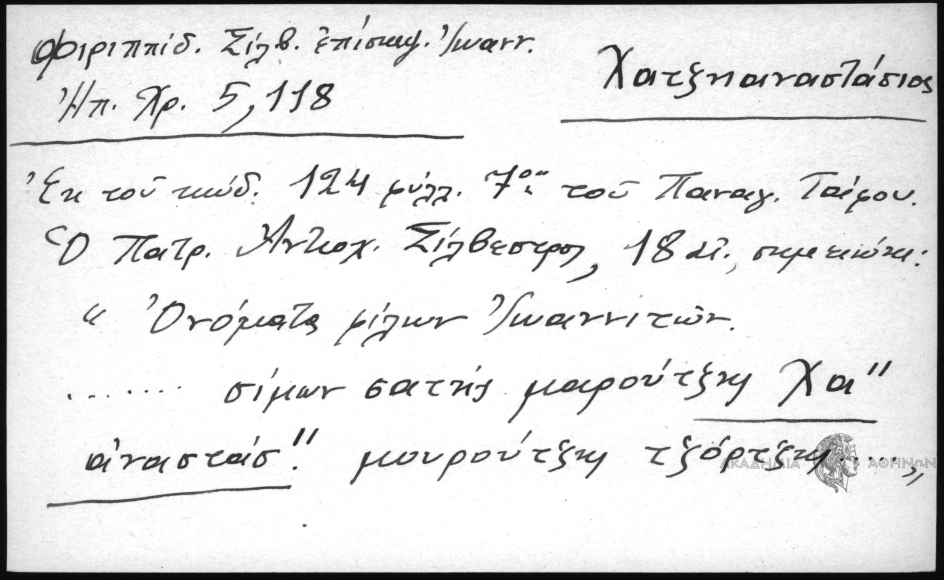 Φιριππίδ. Σίλβ. ἐπίσκεψ. Ἰωανν.
Ἠπ. Χρ. 5, 118
Χατζηαναστάσιος
Ἐκ τοῦ κώδ. 124 φύλλ. 7ον τοῦ Παναγ. Τάφου.
Ὁ Πατρ. Ἀντιοχ. Σίλβεστρος, 18 αἰ., σημειώνει:
“ Ὀνόματα φίλων Ἰωαννιτῶν.
....... σίμων σατής μαρούτζης Χα"
ἀναστάσ". μουρούτζης τζόρτζης ....„
ΑΚΑΔΗΜΙΑ ΑΘΗΝΩΝ